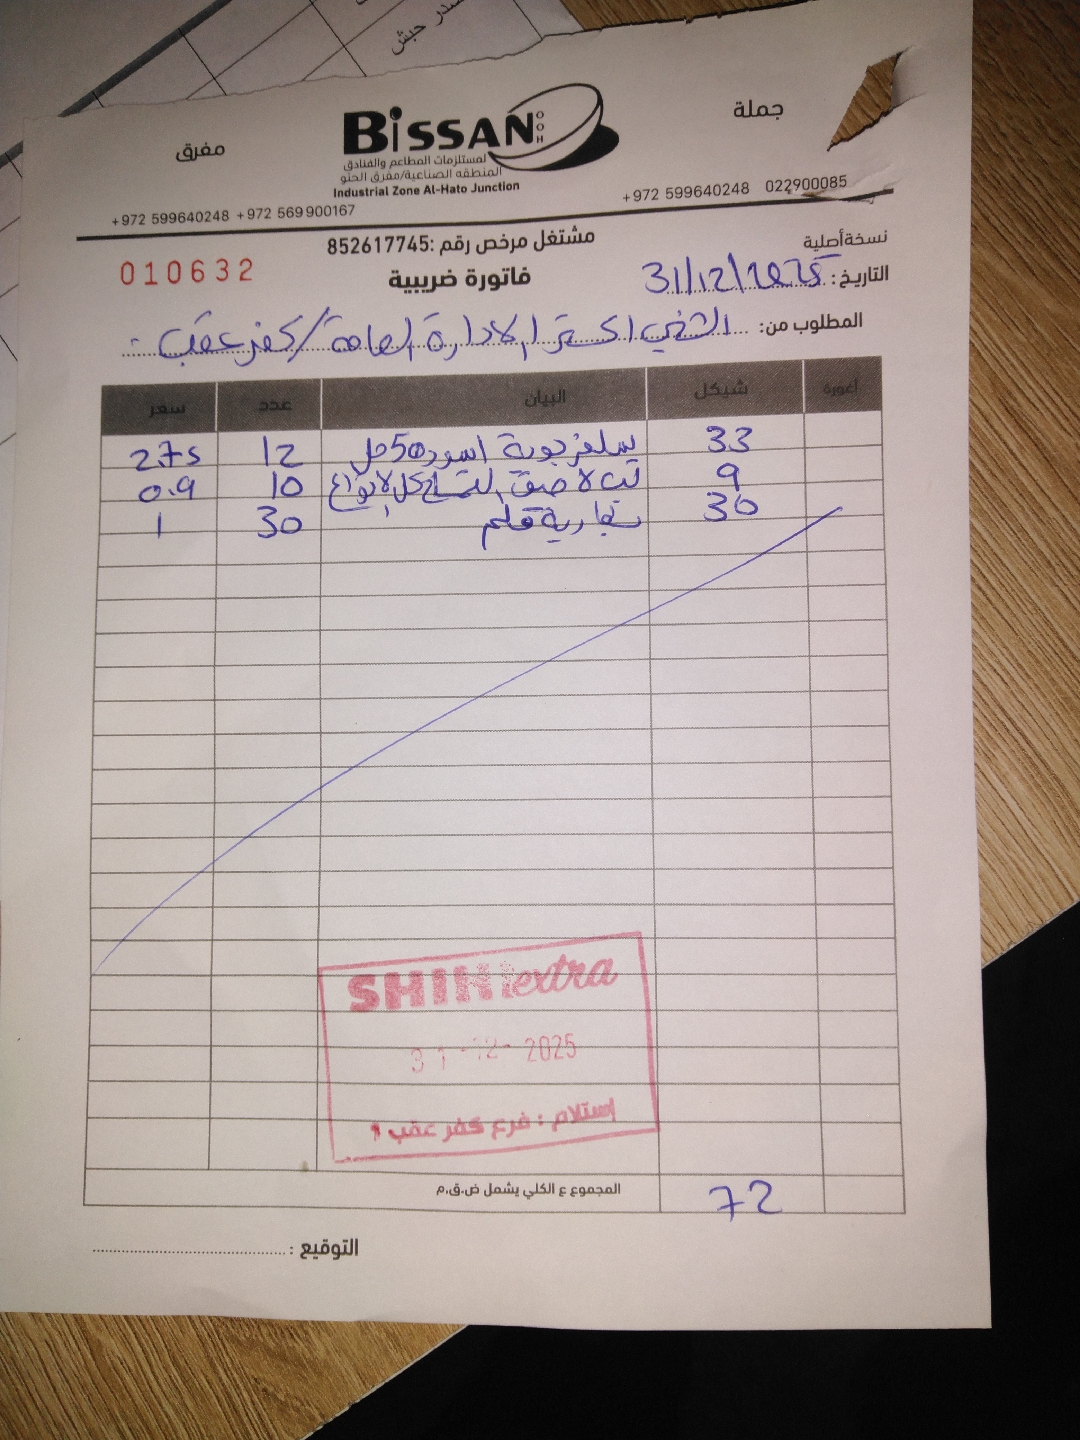 حبش
جملة
BISSAN
مفرق
لمستلزمات المطاعم والفنادق
المنطقه الصناعية/مفرق الحتو
Industrial Zone Al-Hato Junction
+972 599640248 022900085
+972 599640248 +972 569900167
نسخة أصلية
مشتغل مرخص رقم :852617745
التاريخ: 31/12/2025
فاتورة ضريبية
010632
المطلوب من: الشني اكسترا الادارة العامة / كفر عقب
أغورة شيكل البيان عدد سعر
33 اسود 50 12 2.75
9 لاصق كل الانواع 10 0.9
30 قلم 30 1
SHINI extra
31 -12- 2025
إستلام : فرع كفر عقب 1
المجموع ع الكلي يشمل ض.ق.م 72
التوقيع :